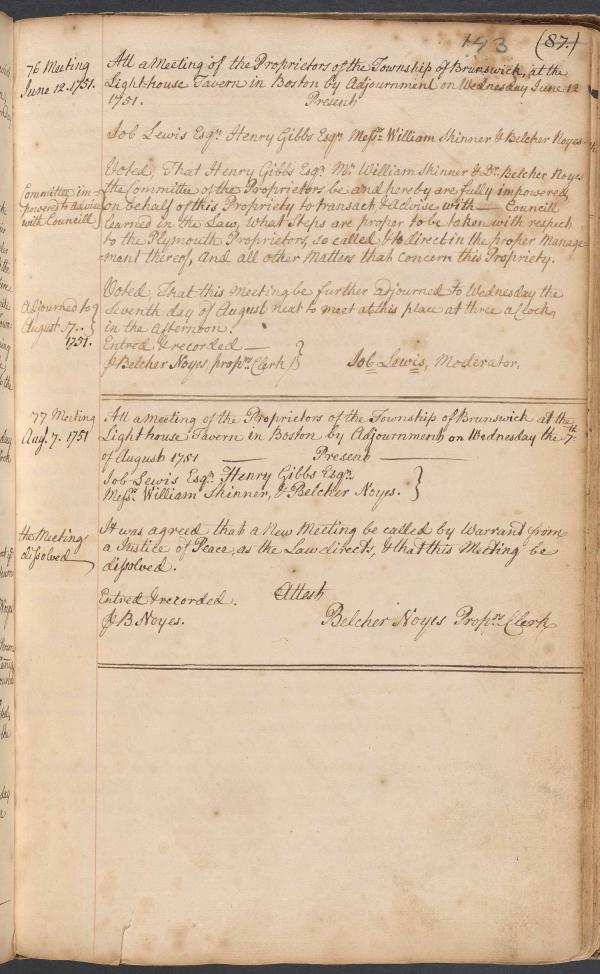 143 (87.)
76 Meeting
June 12. 1751.
Att a Meeting of the Proprietors of the Township of Brunswick, at the
Light-house Tavern in Boston by Adjournment on Wednesday June 12
1751. Present
Job Lewis Esqr. Henry Gibbs Esqr. Messrs. William Skinner & Belcher Noyes
Committee im-
powred to advise
with Councill
Voted, That Henry Gibbs Esqr. Mr. William Skinner & Dr. Belcher Noyes
the Committee of the Proprietors be and hereby are fully impowered
on behalf of this Propriety to transact & advise with — Councill
learned in the Law, what Steps are proper to be taken with respect
to the Plymouth Proprietors, so called & to direct in the proper Manage-
=ment thereof, And all other Matters that concern this Propriety.
Adjourned to
August 7.
1751.
Voted, That this Meeting be further adjourned to Wednesday the
Seventh day of August next to meet at this place at three a Clock,
in the Afternoon.
Entred & recorded —
Belcher Noyes proprs. Clerk Job Lewis, Moderator.
77 Meeting
Augt. 7. 1751
Att a meeting of the Proprietors of the Township of Brunswick at the
Lighthouse Tavern in Boston by Adjournment on Wednesday the 7th.
of August 1751 — Present —
Job Lewis Esqr. Henry Gibbs Esqr.
Messrs. William Skinner, & Belcher Noyes.
the Meeting
dissolved
It was agreed that a New Meeting be called by Warrant from
a Justice of Peace, as the Law directs, & that this Meeting be
dissolved.
Entred & recorded. Attest
B Noyes. Belcher Noyes Proprs. Clerk